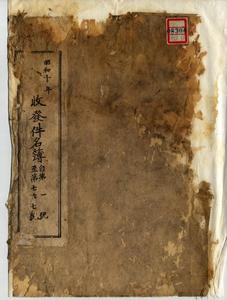 昭和十年
收發件名簿
自第一號
至第七六七號